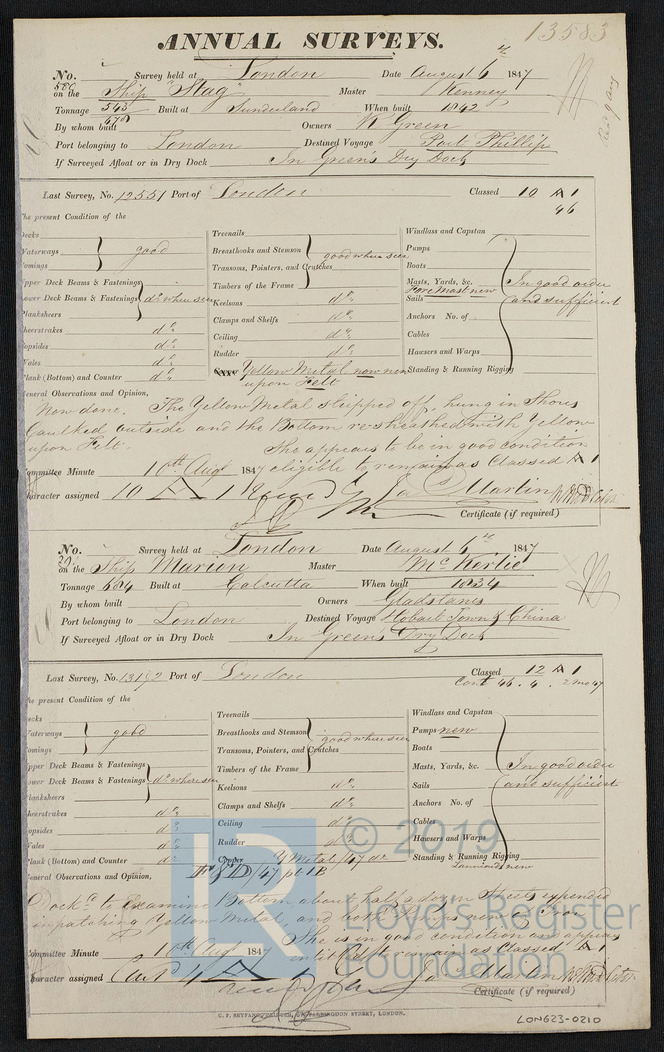 13583
ANNUAL SURVEYS.
No. 580 Survey held at London Date August 6th 1847
on the Ship "Stag" Master Kenney
Tonnage 543 678 Built at Sunderland When built 1842
By whom built Owners R Green
Port belonging to London Destined Voyage Port Phillip
If Surveyed Afloat or in Dry Dock In Green's Dry Dock
Last Survey, No. 12551 Port of London Classed 10 A 1
46
he present Condition of the
ecks
Waterways good
omings
pper Deck Beams & Fastenings
ower Deck Beams & Fastenings do where seen
lanksheers
heerstrakes do
opsides do
Vales do
lank (Bottom) and Counter do
Treenails
Breasthooks and Stemson good where seen
Transoms, Pointers, and Crutches
Timbers of the Frame
Keelsons do
Clamps and Shelfs do
Ceiling do
Rudder do
Yellow Metal now new
upon Felt
Windlass and Capstan
Pumps
Boats
Masts, Yards, &c. In good order
Fore Mast new
Sails and sufficient
Anchors No. of
Cables
Hawsers and Warps
Standing & Running Rigging
eneral Observations and Opinion,
Now done. The Yellow Metal stripped off, hung in Shores
Caulked outside and the Bottom resheathed with Yellow
upon Felt.
She appears to be in good condition
ommittee Minute 10th Augt 1847 eligible to remain as Classed A 1
haracter assigned 10 A 1 Jas Martin
Certificate (if required)
No. Survey held at London Date August 6th 1847
on the Ship Marion Master McKerlie
Tonnage 684 Built at Calcutta When built 1834
By whom built Owners Gladstanes
Port belonging to London Destined Voyage Hobart Town & China
If Surveyed Afloat or in Dry Dock In Green's Dry Dock
Last Survey, No. 13192 Port of London Classed 12 A 1
Cont 46. 4. 2 mo 47
he present Condition of the
ecks
Waterways good
omings
pper Deck Beams & Fastenings
ower Deck Beams & Fastenings do where seen
lanksheers
heerstrakes do
opsides do
Vales do
lank (Bottom) and Counter do
Treenails
Breasthooks and Stemson good where seen
Transoms, Pointers, and Crutches
Timbers of the Frame
Keelsons do
Clamps and Shelfs do
Ceiling do
Rudder do
Copper Y Metal /47 do
Windlass and Capstan
Pumps new
Boats
Masts, Yards, &c. In good order
Sails and sufficient
Anchors No. of
Cables
Hawsers and Warps
Standing & Running Rigging
Lanniards new
eneral Observations and Opinion,
Dockd to Examine Bottom about half a dozen Sheets expended
in patching Yellow Metal, and both
She is in good condition and appears
ommittee Minute 10th Augt 1847 entitled to remain as Classed A 1
haracter assigned Contd 4 A 1 Jas Martin
Certificate (if required)
© 2019
Lloyd's Register
Foundation
LON623-0210